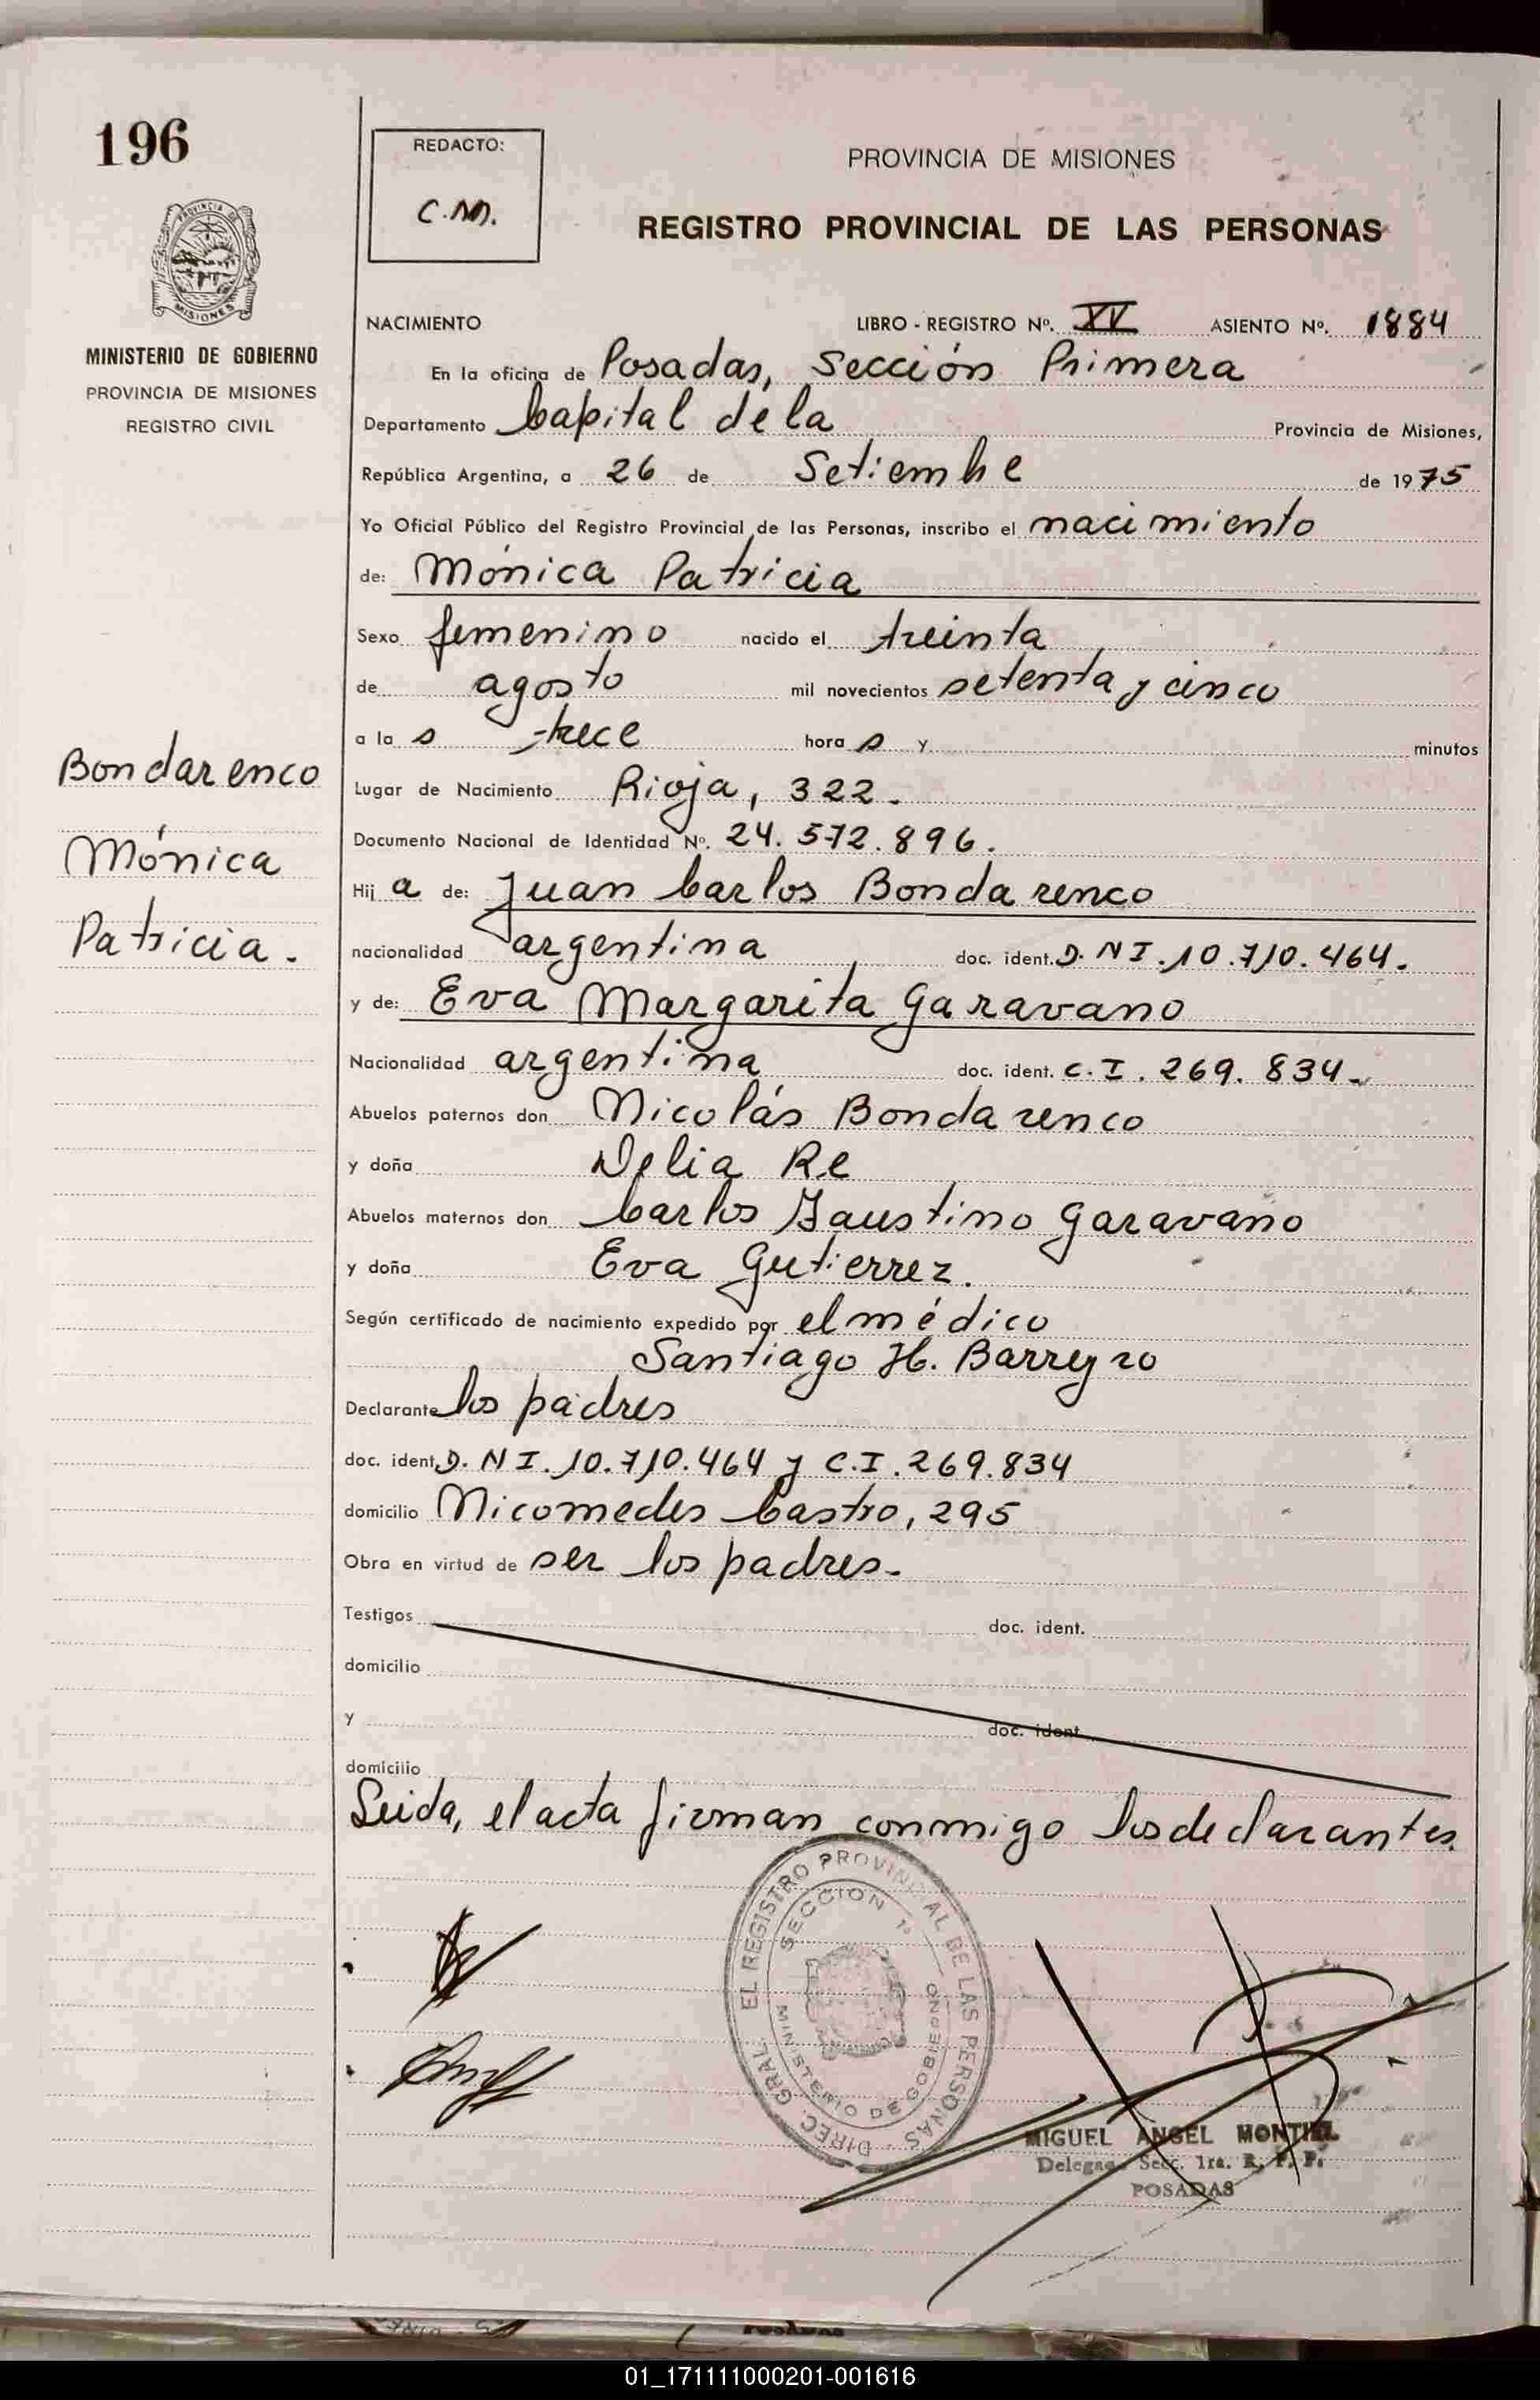 196
REDACTO:
C.M.
PROVINCIA DE MISIONES
REGISTRO PROVINCIAL DE LAS PERSONAS
PROVINCIA DE
MISIONES
MINISTERIO DE GOBIERNO
PROVINCIA DE MISIONES
REGISTRO CIVIL
NACIMIENTO LIBRO - REGISTRO Nº. XV ASIENTO Nº. 1884
En la oficina de Posadas, Sección Primera
Departamento Capital de la Provincia de Misiones,
República Argentina, a 26 de Setiembre de 1975
Yo Oficial Público del Registro Provincial de las Personas, inscribo el nacimiento
de: Mónica Patricia
Sexo femenino nacido el treinta
de agosto mil novecientos setenta y cinco
a la s trece hora s y minutos
Lugar de Nacimiento Rioja, 322.
Documento Nacional de Identidad Nº. 24.572.896.
Hij a de: Juan Carlos Bondarenco
nacionalidad argentina doc. ident. D.N I.10.710.464.
y de: Eva Margarita Garavano
Nacionalidad argentina doc. ident. C.I.269.834.
Abuelos paternos don Nicolás Bondarenco
y doña Delia Re
Abuelos maternos don Carlos Faustino Garavano
y doña Eva Gutierrez.
Según certificado de nacimiento expedido por el médico
Santiago H. Barreyro
Declarante los padres
doc. ident. D.N I.10.710.464 y C.I.269.834
domicilio Nicomedes Castro, 295
Obra en virtud de ser los padres.
Testigos doc. ident.
domicilio
y doc. ident.
domicilio
Leida, el acta firman conmigo los declarantes.
Bondarenco
Mónica
Patricia.
DIREC. GRAL. EL REGISTRO PROVINCIAL DE LAS PERSONAS
SECCION 1ª
MINISTERIO DE GOBIERNO
MIGUEL ANGEL MONTIEL
Secc. 1ra. R. P. P.
POSADAS
01_171111000201-001616